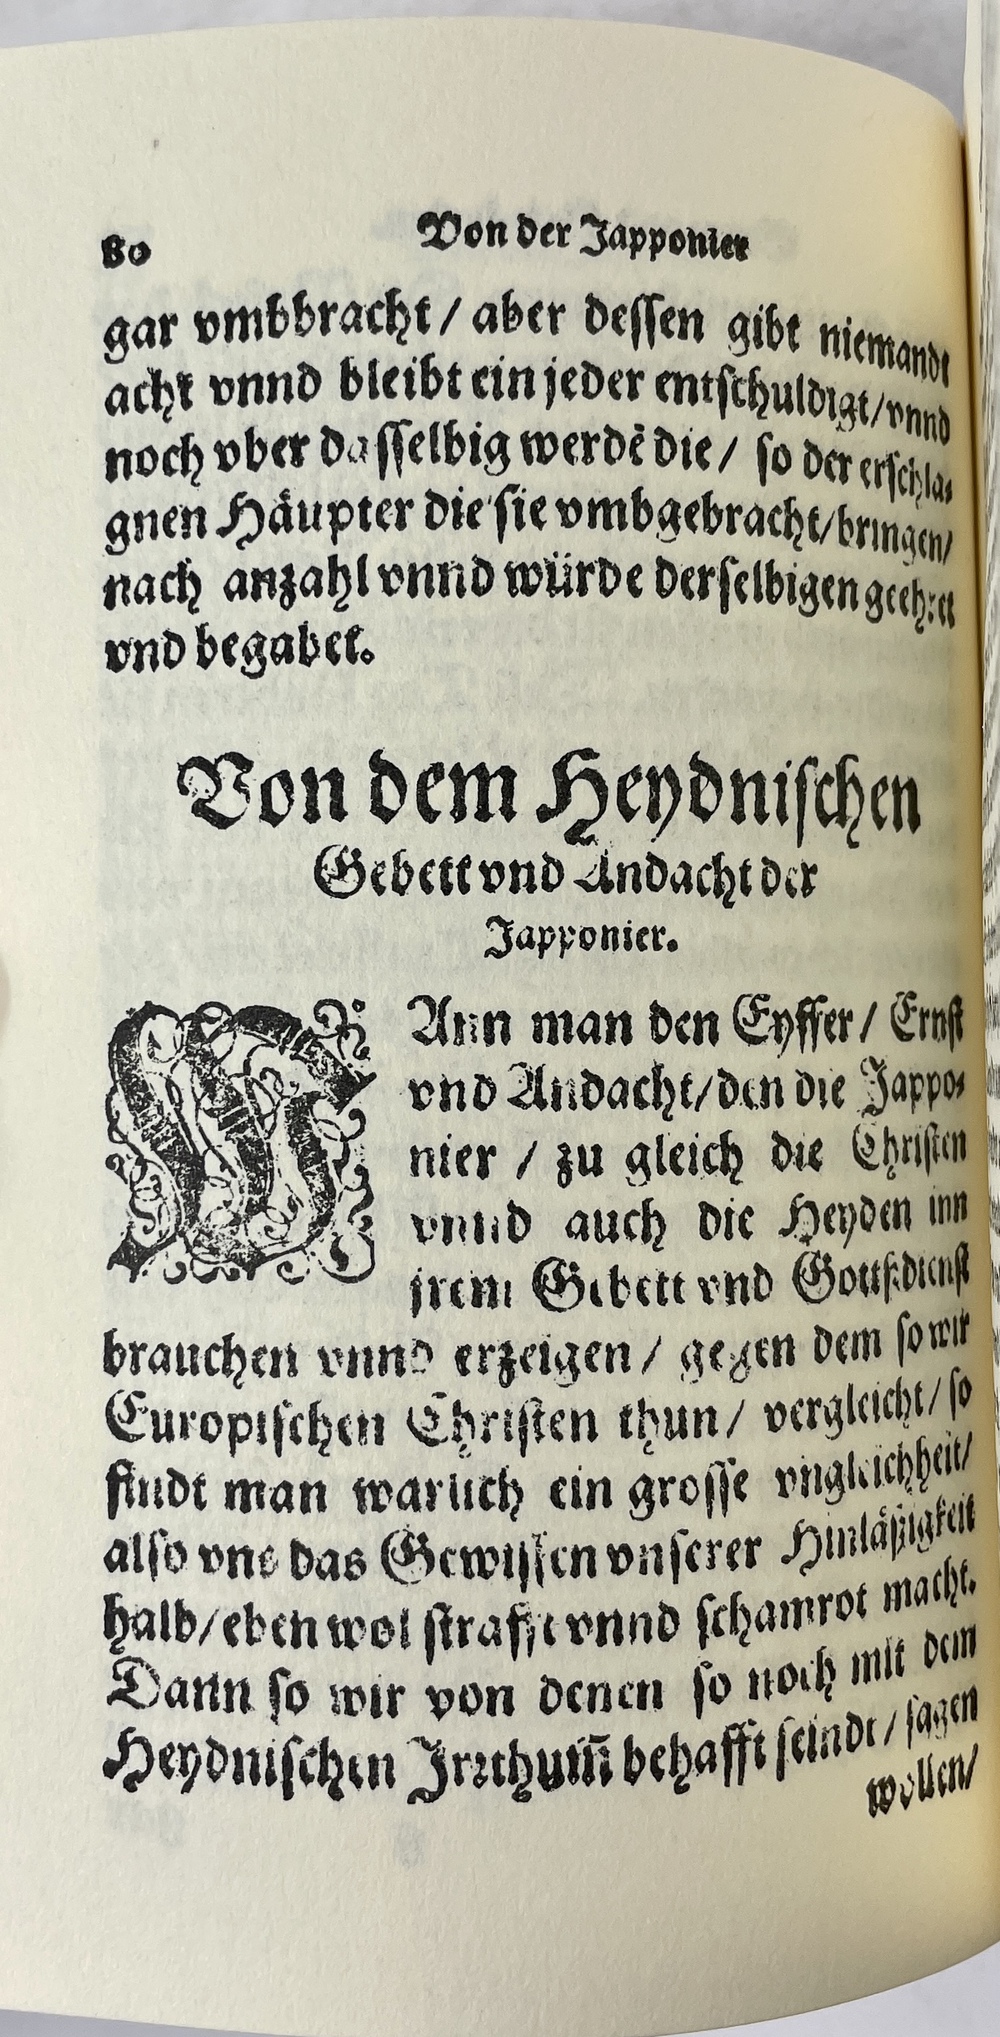 80
Von der Japponier
gar vmbbracht / aber dessen gibt niemandt
acht vnnd bleibt ein jeder entschuldigt / vnnd
noch vber dasselbig werdẽ die / so der erschla⸗
gnen Häupter die sie vmbgebracht / bringen /
nach anzahl vnnd würde derselbigen geehret
vnd begabet.
Von dem Heydnischen
Gebett vnd Andacht der
Japponier.
WAnn man den Eyffer / Ernst
vnd Andacht / den die Jappo⸗
nier / zu gleich die Christen
vnnd auch die Heyden inn
jrem Gebett vnd Gottßdienst
brauchen vnnd erzeigen / gegen dem so wir
Europischen Christen thun / vergleicht / so
findt man warlich ein grosse vngleichheit /
also vns das Gewissen vnserer Hinläßigkeit
halb / eben wol strafft vnnd schamrot macht.
Dann so wir von denen so noch mit dem
Heydnischen Jrrthum̃ behafft seindt / sagen
wollen /